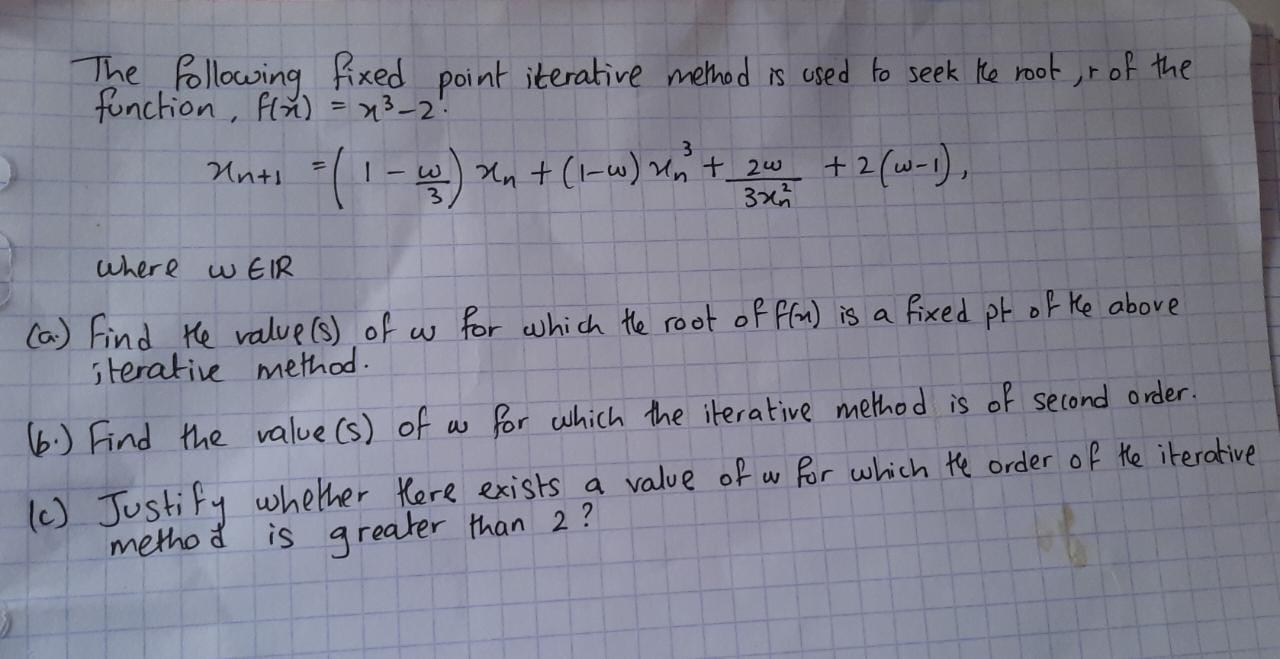 The following fixed point iterative method is used to seek the root, r of the
function, f(x) = x³-2.
xn+1 = (1 - ω/3) xn + (1-ω) xn³ + 2ω/3xn² + 2(ω-1),
where ω ∈ IR
(a.) Find the value(s) of ω for which the root of f(x) is a fixed pt of the above
iterative method.
(b.) Find the value(s) of ω for which the iterative method is of second order.
(c) Justify whether there exists a value of ω for which the order of the iterative
method is greater than 2?